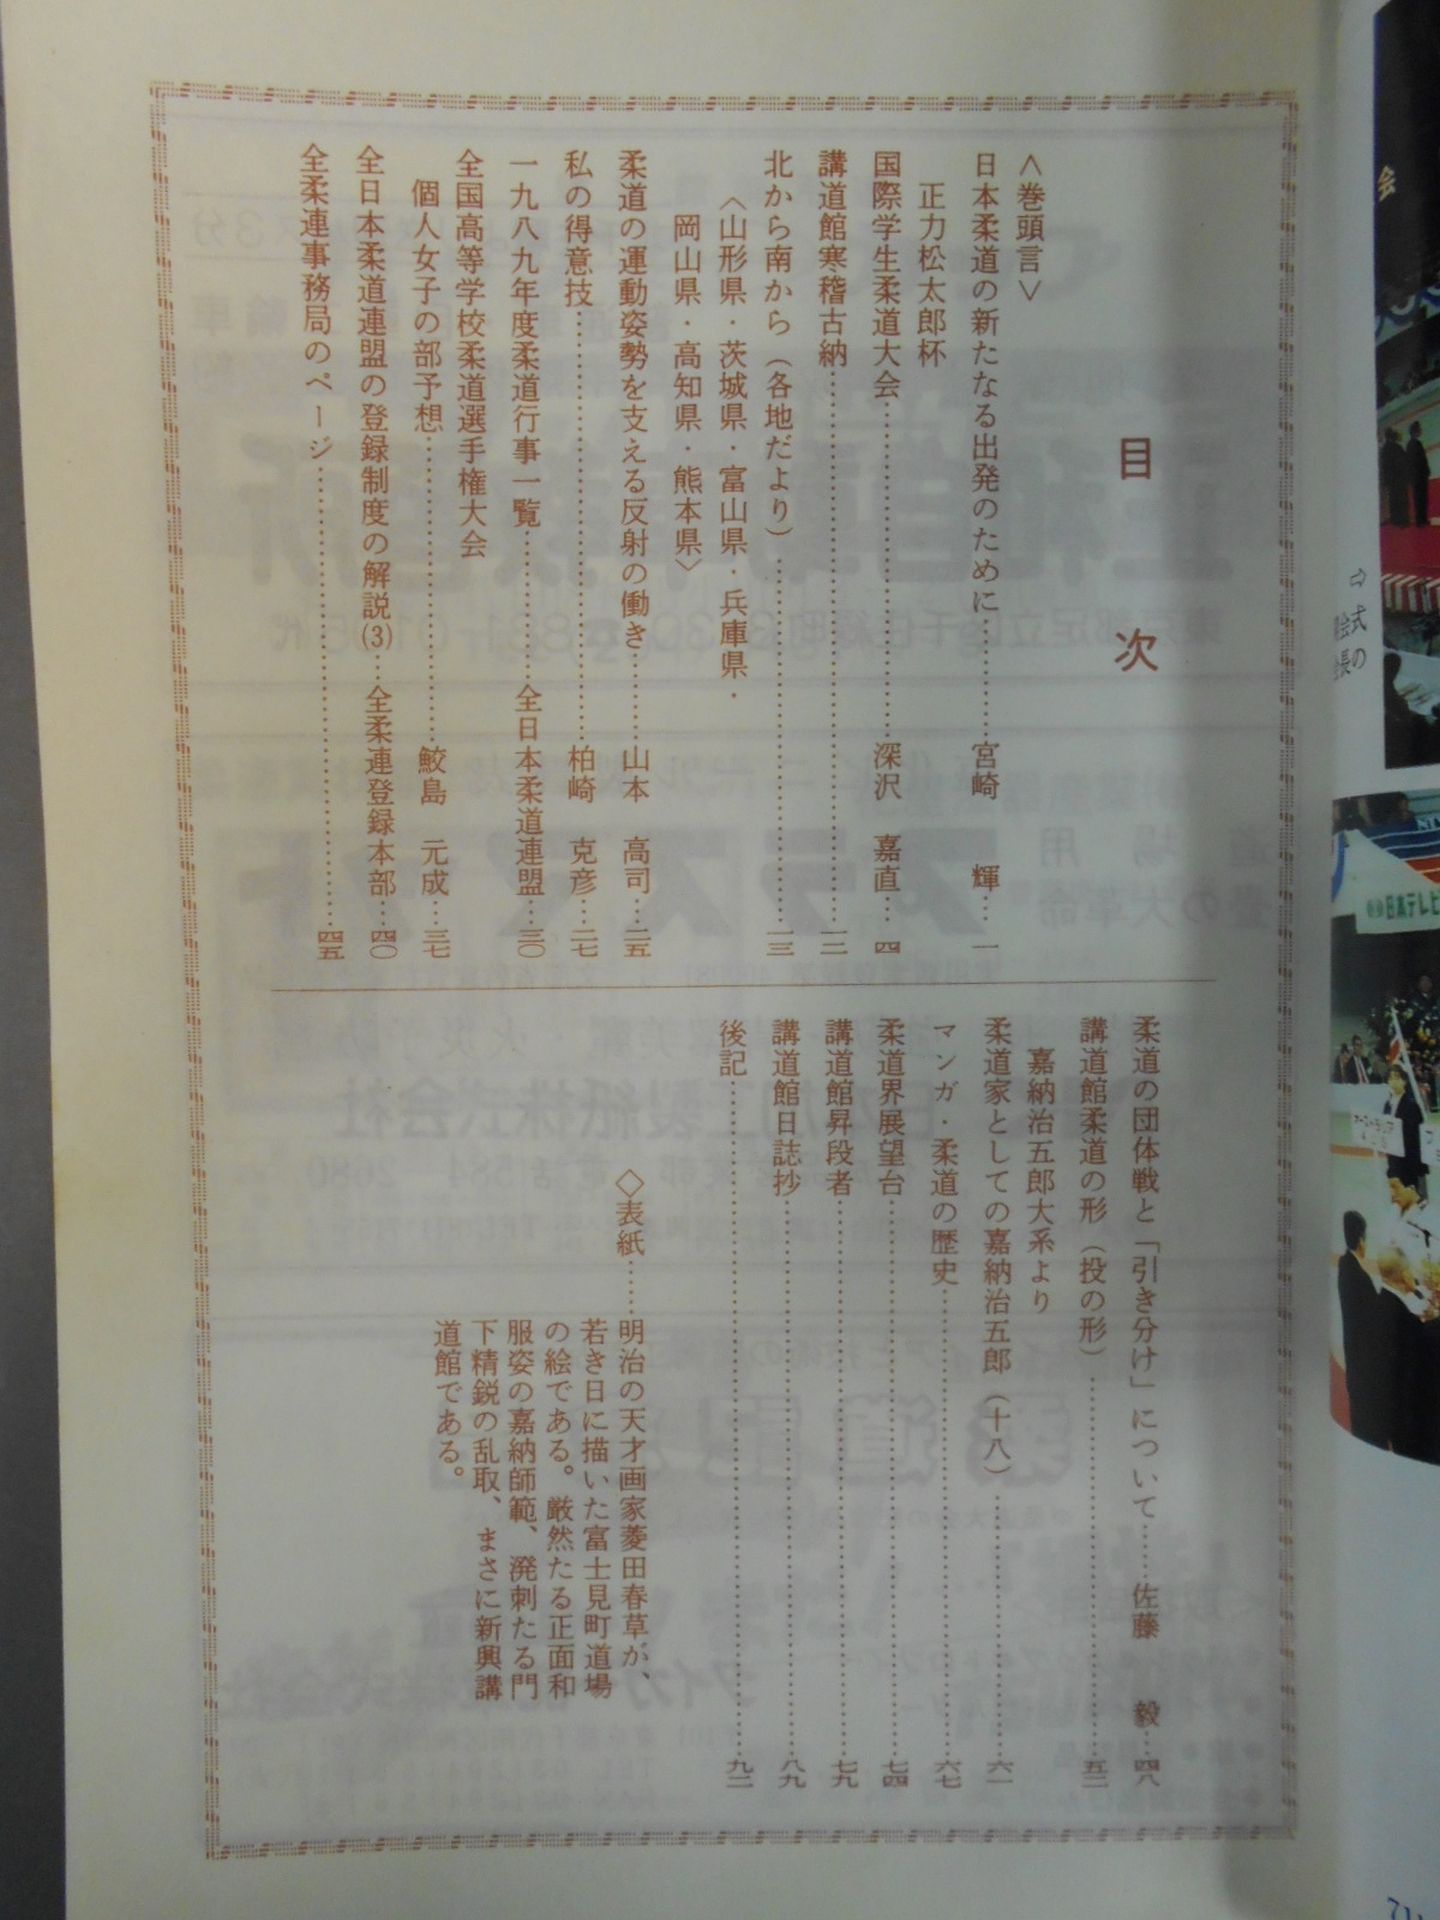 目次
＜巻頭言＞
日本柔道の新たなる出発のために……宮崎　輝…一
正力松太郎杯
国際学生柔道大会……深沢　嘉直…四
講道館寒稽古納……一二
北から南から（各地だより）……一三
〈山形県・茨城県・富山県・兵庫県・
岡山県・高知県・熊本県〉
柔道の運動姿勢を支える反射の働き……山本　高司…二五
私の得意技……柏崎　克彦…二七
一九八九年度柔道行事一覧……全日本柔道連盟…三〇
全国高等学校柔道選手権大会
個人女子の部予想……鮫島　元成…三七
全日本柔道連盟の登録制度の解説(3)…全柔連登録本部…四〇
全柔連事務局のページ……四五
柔道の団体戦と「引き分け」について……佐藤　毅…四八
講道館柔道の形（投の形）……五二
嘉納治五郎大系より
柔道家としての嘉納治五郎（十八）……六一
マンガ・柔道の歴史……六七
柔道界展望台……七四
講道館昇段者……七九
講道館日誌抄……八九
後記……九二
◇表紙……明治の天才画家菱田春草が、
若き日に描いた富士見町道場
の絵である。厳然たる正面和
服姿の嘉納師範、溌刺たる門
下精鋭の乱取、まさに新興講
道館である。
会
会式
会長の
日本テレビ